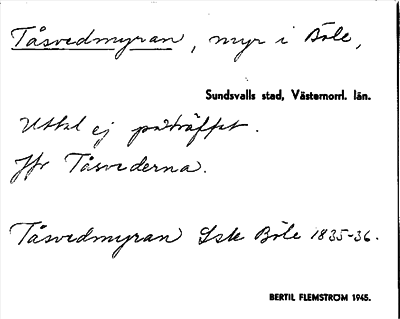 Tåsvedmyran, myr i Böle,
Sundsvalls stad, Västernorrl. län.
Uttal ej påträffat.
Jfr Tåsvederna.
Tåsvedmyran Lsk Böle 1835-36.
BERTIL FLEMSTRÖM 1945.